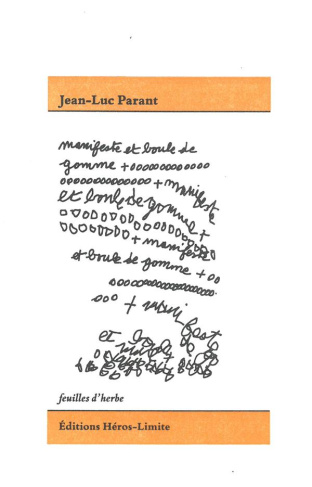 Jean-Luc Parant
manifeste et boule de
gomme +oooooooooooo
ooooooooooooo + manifeste
et boule de gomme +
+ manifeste
et boule de gomme + oo
ooooooooooooooo
ooo +
et
feuilles d'herbe
Éditions Héros-Limite